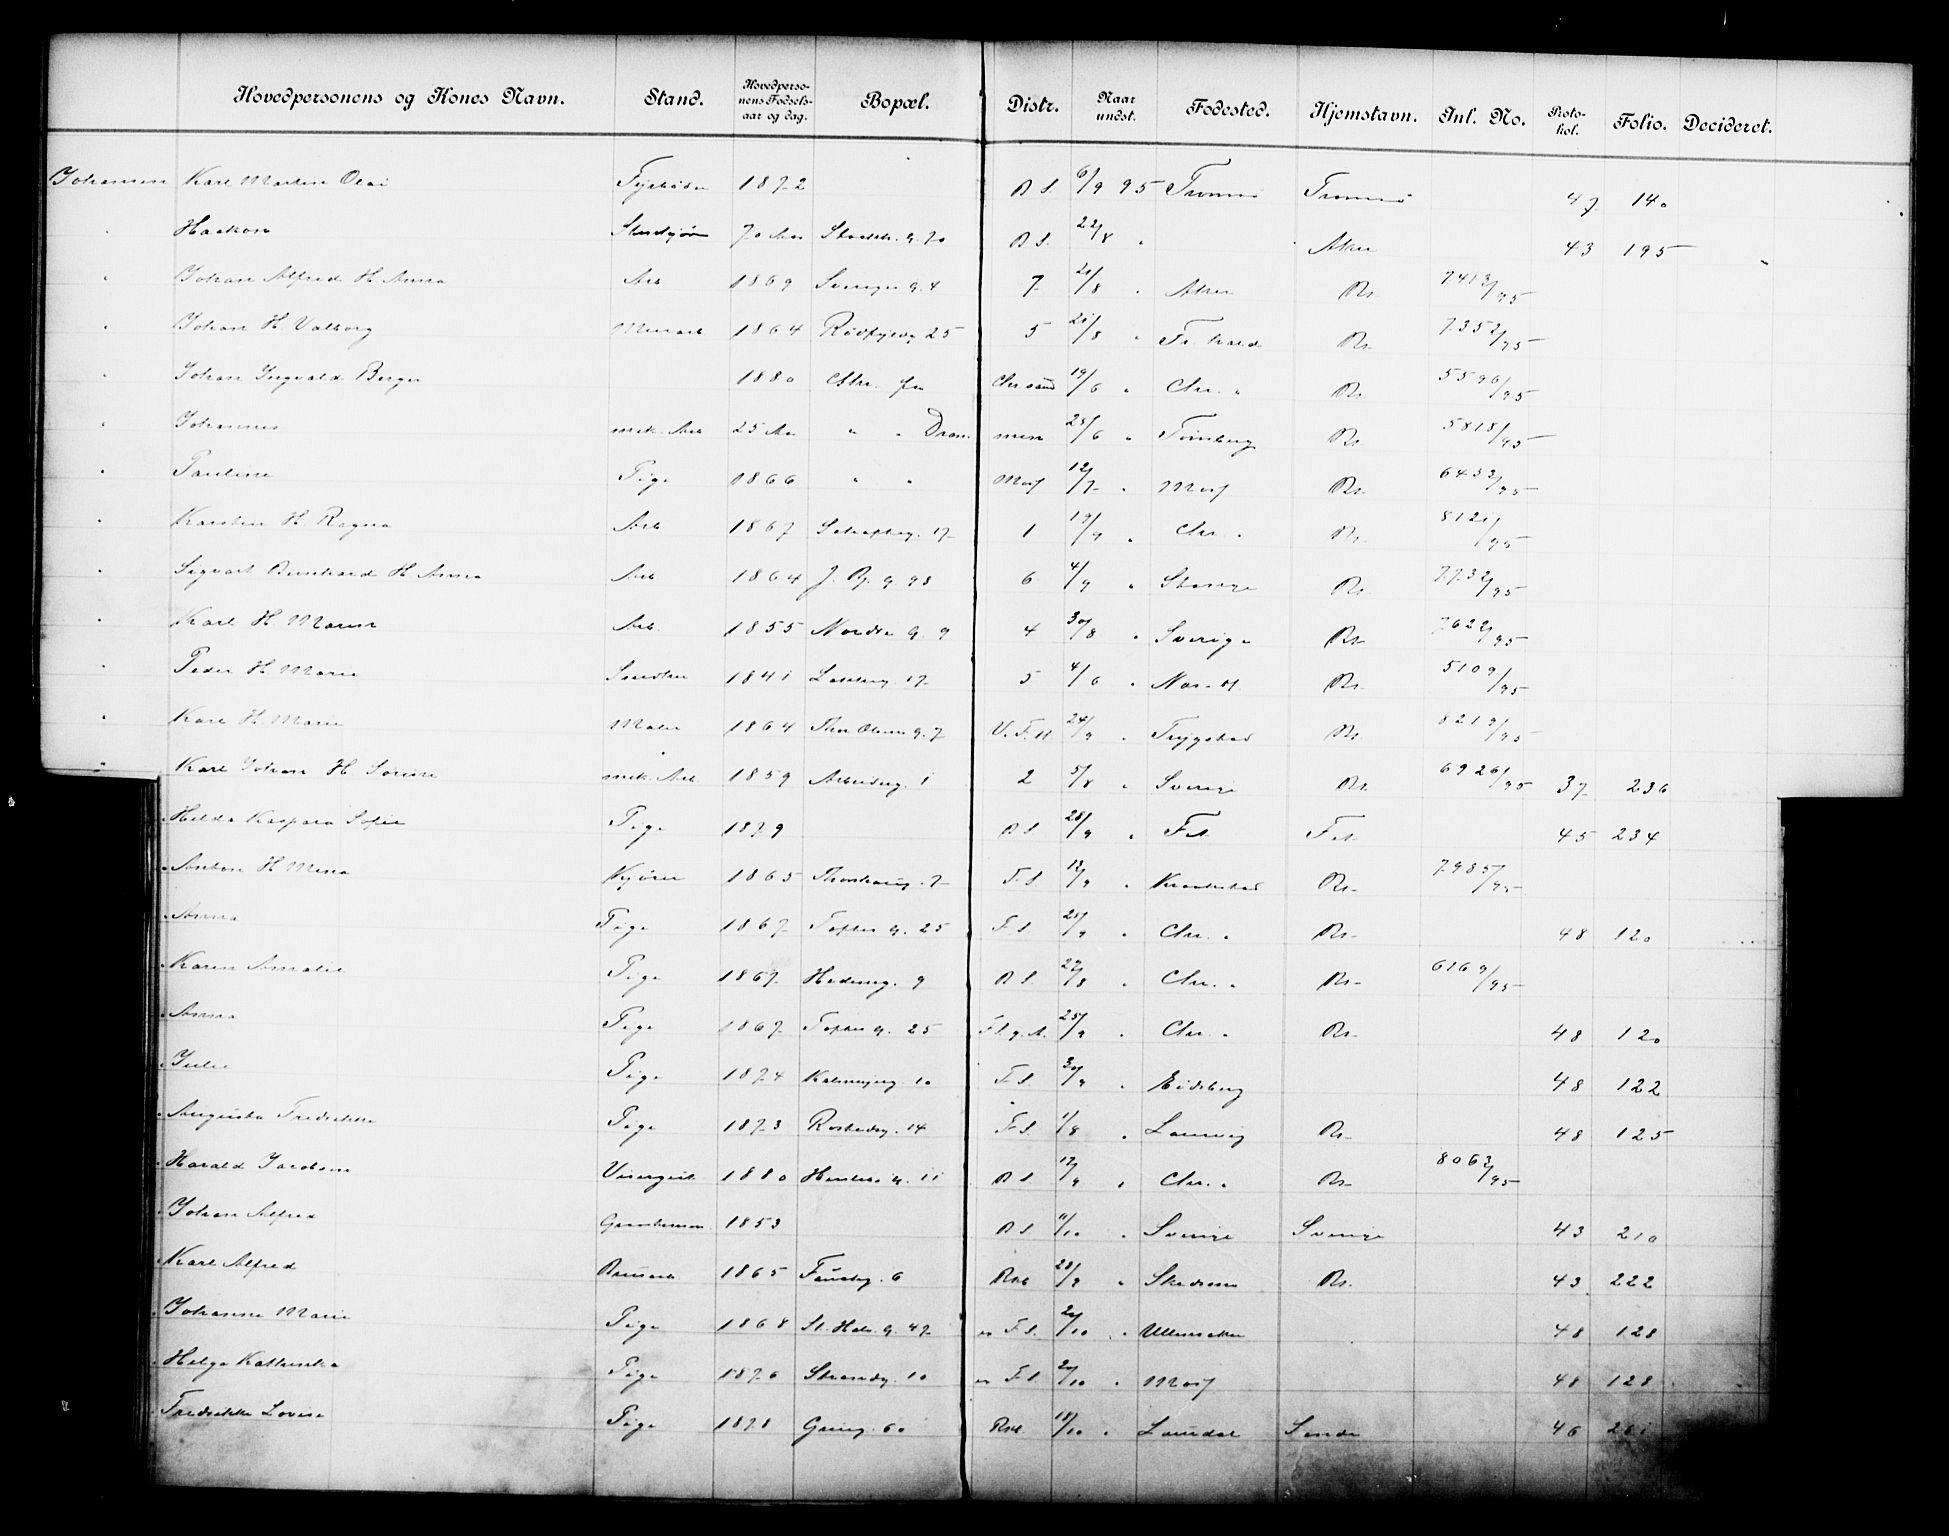 Hovedpersonens og Kones Navn. Stand. Hovedpersonens Fødselsaar og dag. Bopæl. Distr. Naar undst. Fødested. Hjemstavn. Jnl. No. Protokol. Folio. Decideret.
Johansen Karl Martin Olai 1872 B S. 6/9 95 Tromsø Tromsø 47 140
" Haakon 70 Aar 70 B S. 22/8 " Aker 43 195
" Johan Alfred H. Anna Arb 1869 Sveriges G. 4 7 21/8 " Aker Kr. 7413/95
" Johan H. Valborg Murarb 1864 Rødfyldg 25 5 21/8 " Fr. hald Kr. 7352/95
" Johan Ingvald Berger 1880 Chr. fra Chr sand 19/6 " Chr. " Kr. 5596/95
" Johannes mek. Arb 25 Aar " " Drammen 25/6 " Tønsberg Kr. 5818/95
" Pauline Pige 1866 " " Moss 12/7 " Moss Kr. 6432/95
" Karsten H. Ragna Arb 1867 17 1 19/9 " Chr. " Kr. 8121/95
" Sigvart Bernhard H. Anna Arb 1864 98 6 4/9 " Stange Kr. 7732/95
" Karl H. Maren Arb. 1855 Nordre G. 9 4 30/8 " Sverige Kr. 7622/95
" Peder H. Marie 1841 Lakkeg 17 5 4/6 " Kr. 5109/95
" Karl H. Marie Maler 1864 Thor Olsens G. 7 V. F. H 24/9 " Trygstad Kr. 8219/95
" Karl Johan H. Sørine mek. Arb. 1859 Arbeiderg. 1 2 5/8 " Sverige Kr. 6926/95 37 236
" Hilda Kaspara Sofie Pige 1879 B S. 28/9 " Fet Fet 45 234
" Anton H. Mina Kjører 1865 7 F. S. 12/9 " Kraakstad Kr. 7985/95
" Anna Pige 1867 Toftes G. 25 F. S. 25/9 " Chr. " Kr. 48 120
" Karen Amalie Pige 1867 Hedemg. 9 B S. 22/8 " Chr. " Kr. 6169/95
" Anna Pige 1867 Toftes G. 25 25/9 " Chr. " Kr. 48 120
" Julie Pige 1874 Kalmejerg. 10 F. S. 30/9 " Eidsberg 48 122
" Augusta Fredrikke Pige 1873 14 F. S. 1/8 " Laurvig Kr. 48 125
" Harald Jacobson Visergut 1880 11 B S. 17/9 " Chr. " Kr. 8063/95
" Johan Alfred 1853 B S. 11/10 " Sverige Sverige 43 210
" Karl Alfred 1865 6 28/9 " Skedsmo Kr. 43 222
" Johanne Marie Pige 1868 St. Halv. G. 47 F. S. 21/10 " Ullensaker 48 128
" Helga Kathinka Pige 1876 10 F. S. 20/10 " Moss 48 128
" Fredrikke Lovise Pige 1878 60 18/10 " Laurdal Sende 46 261